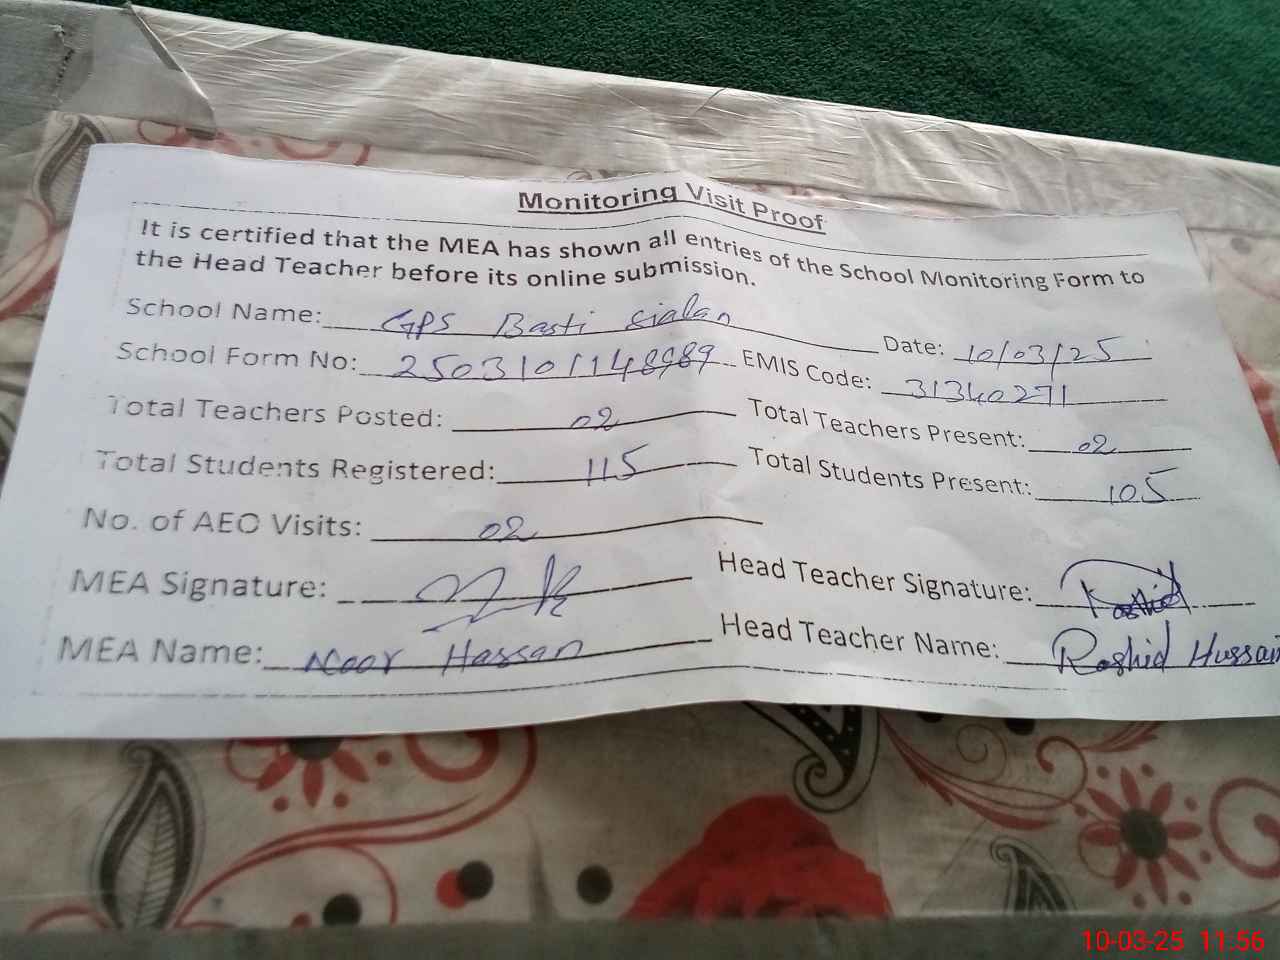 Monitoring Visit Proof
It is certified that the MEA has shown all entries of the School Monitoring Form to
the Head Teacher before its online submission.
School Name: GPS Basti Sialan Date: 10/03/25
School Form No: 2503101148989 EMIS Code: 31340271
Total Teachers Posted: 02 Total Teachers Present: 02
Total Students Registered: 115 Total Students Present: 105
No. of AEO Visits: 02
MEA Signature: Head Teacher Signature: Rashid
MEA Name: Noor Hassan Head Teacher Name: Rashid Hussain
10-03-25 11:56